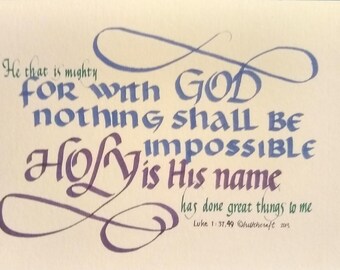 He that is mighty
for with GOD
nothing shall be
impossible
HOLY is His name
has done great things to me
Luke 1:37,49